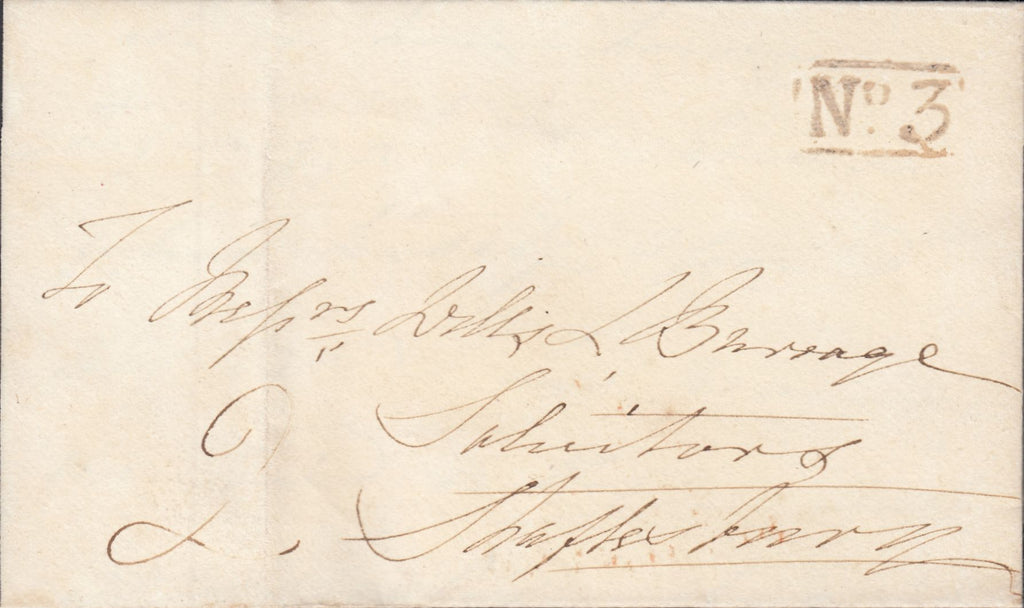 No. 3
To Messrs Willis & Burrage
Solicitors
Shaftesbury